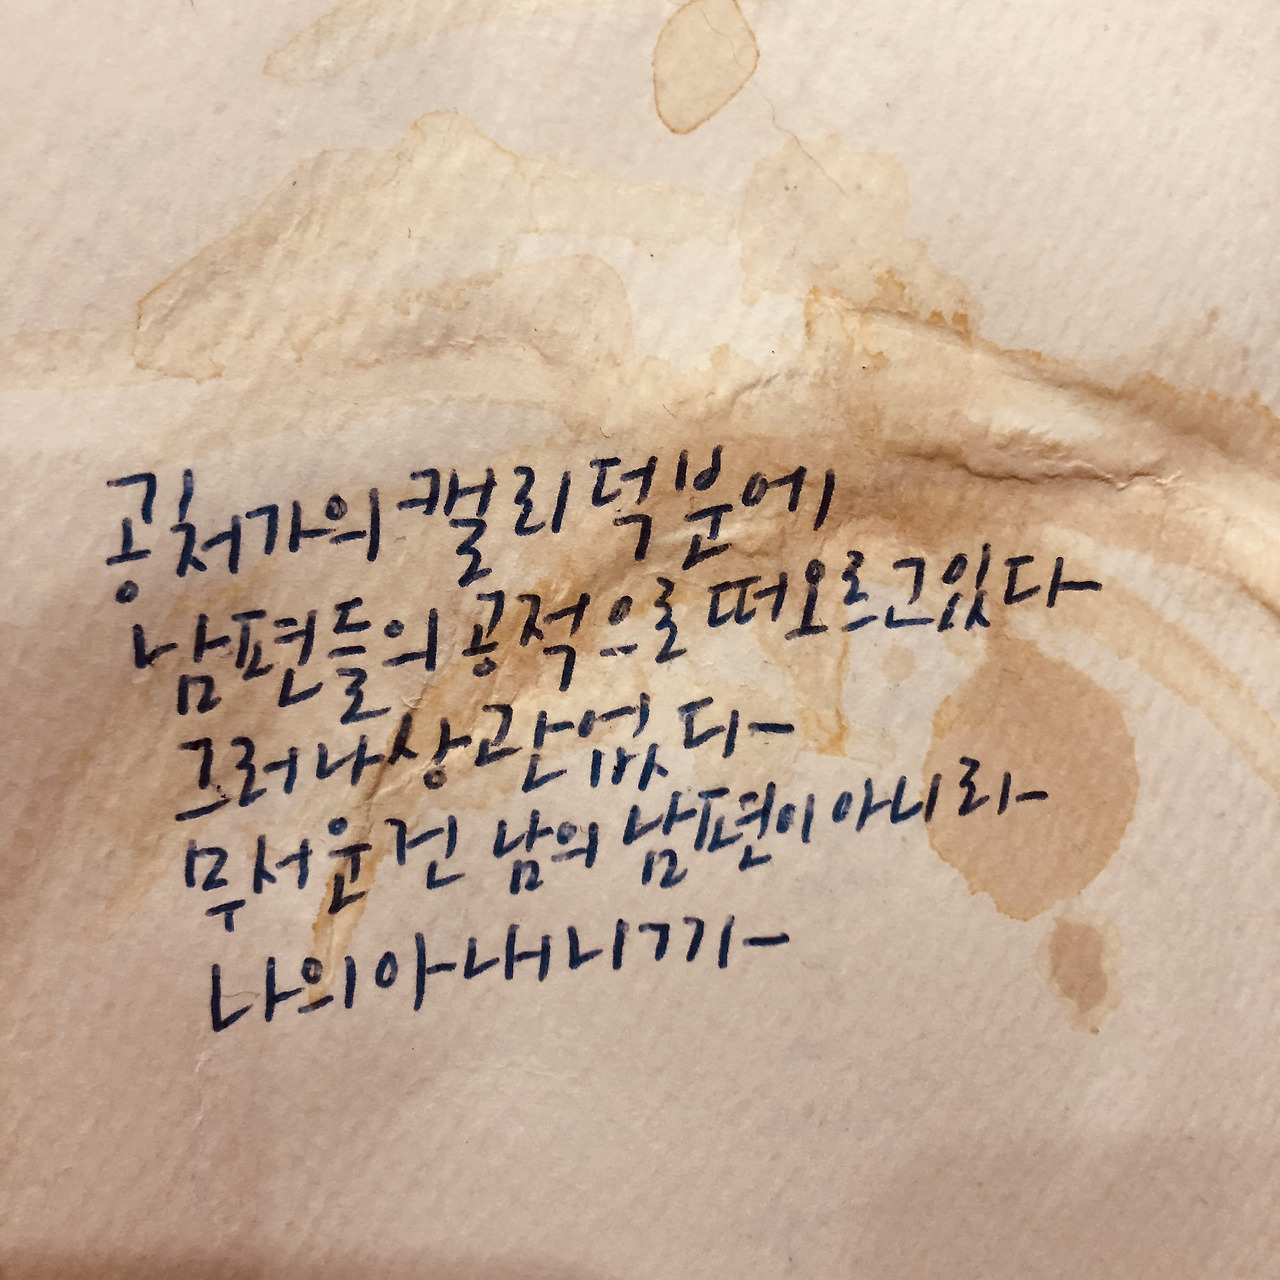 공처가의 캘리 덕분에
남편들의 공적으로 떠오르고있다
그러나 상관없다
무서운건 남의 남편이 아니라
나의 아내니까